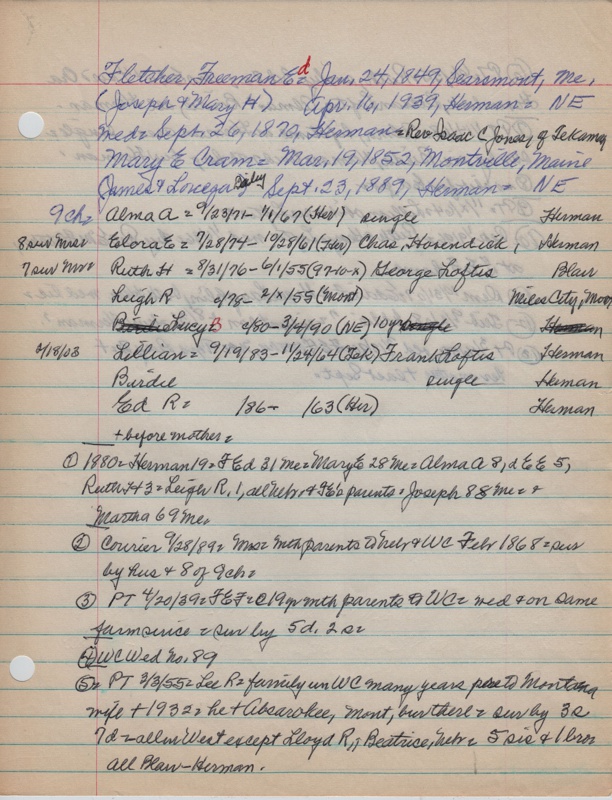 Fletcher, Freeman E= d Jan, 24, 1849, Searsmont, Me,
(Joseph & Mary H.) Apr. 16, 1939, Herman= NE
wed= Sept. 26, 1870, Herman= Rev Isaac C Jones, of Tekama
Mary E Cram= Mar, 19, 1852, Montville, Maine
(James & Bigley) Sept. 23, 1889, Herman= NE
9ch= Alma A = 9/23/71- 1/1/67 (Her) single Herman
8 sur Mrs= Elora E= 7/28/74- 10/28/61 (Her) Chas, Hosendick, Herman
7 sur Mr= Ruth H = 8/31/76- 6/1/55 (97-10-x) George Loftis Blair
Leigh R c/78- 2/x/55 (Mont) Miles City, Mon
Birdie Lucy B c/80- 3/4/90 (NE) 10yr single Herman
Lillian = 9/19/83- 11/24/64 (Tek) Frank Loftis Herman
Birdie single Herman
Ed R= /86- /63 (Her) Herman
+ before mother=
① 1880= Herman 19= F Ed 31 Me= Mary E 28 Me= Alma A 8, d E E 5,
Ruth H 3= Leigh R. 1, all Nebr. & parents= Joseph 88 Me= &
Martha 69 Me.
② Courier 9/28/89= Mrs= mth parents to Nebr & WC Febr 1868= sur
by hus & 8 of 9ch=
③ PT 4/20/39= FEF= @19yr mth parents to WC= wed & on same
farm since = sur by 5d, 2s=
④ WC Wed No. 89
⑤= PT 3/3/55= Lee R= family in WC many years to Montana
wife + 1932= he + Absarokee, Mont, bur there= sur by 3s
7d= all in West except Lloyd R,; Beatrice, Nebr= 5 sis & 1 bro=
all Blair-Herman.